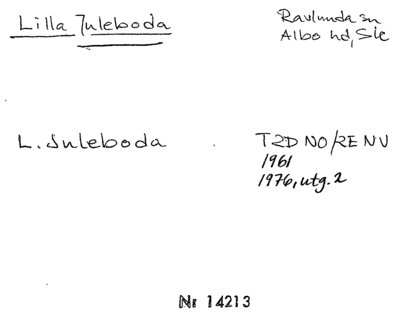 Lilla Juleboda
Ravlunda sn
Albo hd, Skåne
L. Juleboda
T2D NO/2E NV
1961
1976, utg. 2
Nr 14213